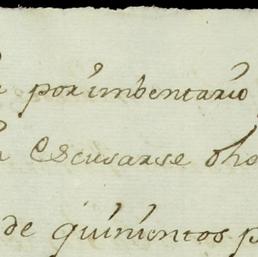 por imbentario
escusarse dho
de quinientos p